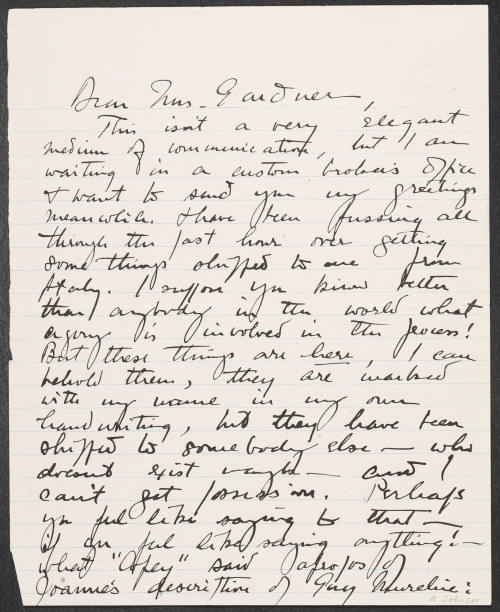 Dear Mrs. Gardner,
This isn't a very elegant
medium of communication, but I am
waiting in a custom broker's office
& want to send you my greetings
meanwhile. I have been fussing all
through the last hour over getting
some things shipped to me from
Italy. I suppose you know better
than anybody in the world what
agony is involved in the process!
But these things are here, I can
behold them, they are marked
with my name in my own
handwriting, but they have been
shipped to somebody else – who
doesn't exist – and I
can't get possession. Perhaps
you feel like saying to that –
if you feel like saying anything! –
what "Apey" said apropos of
Joanne's description of Guy